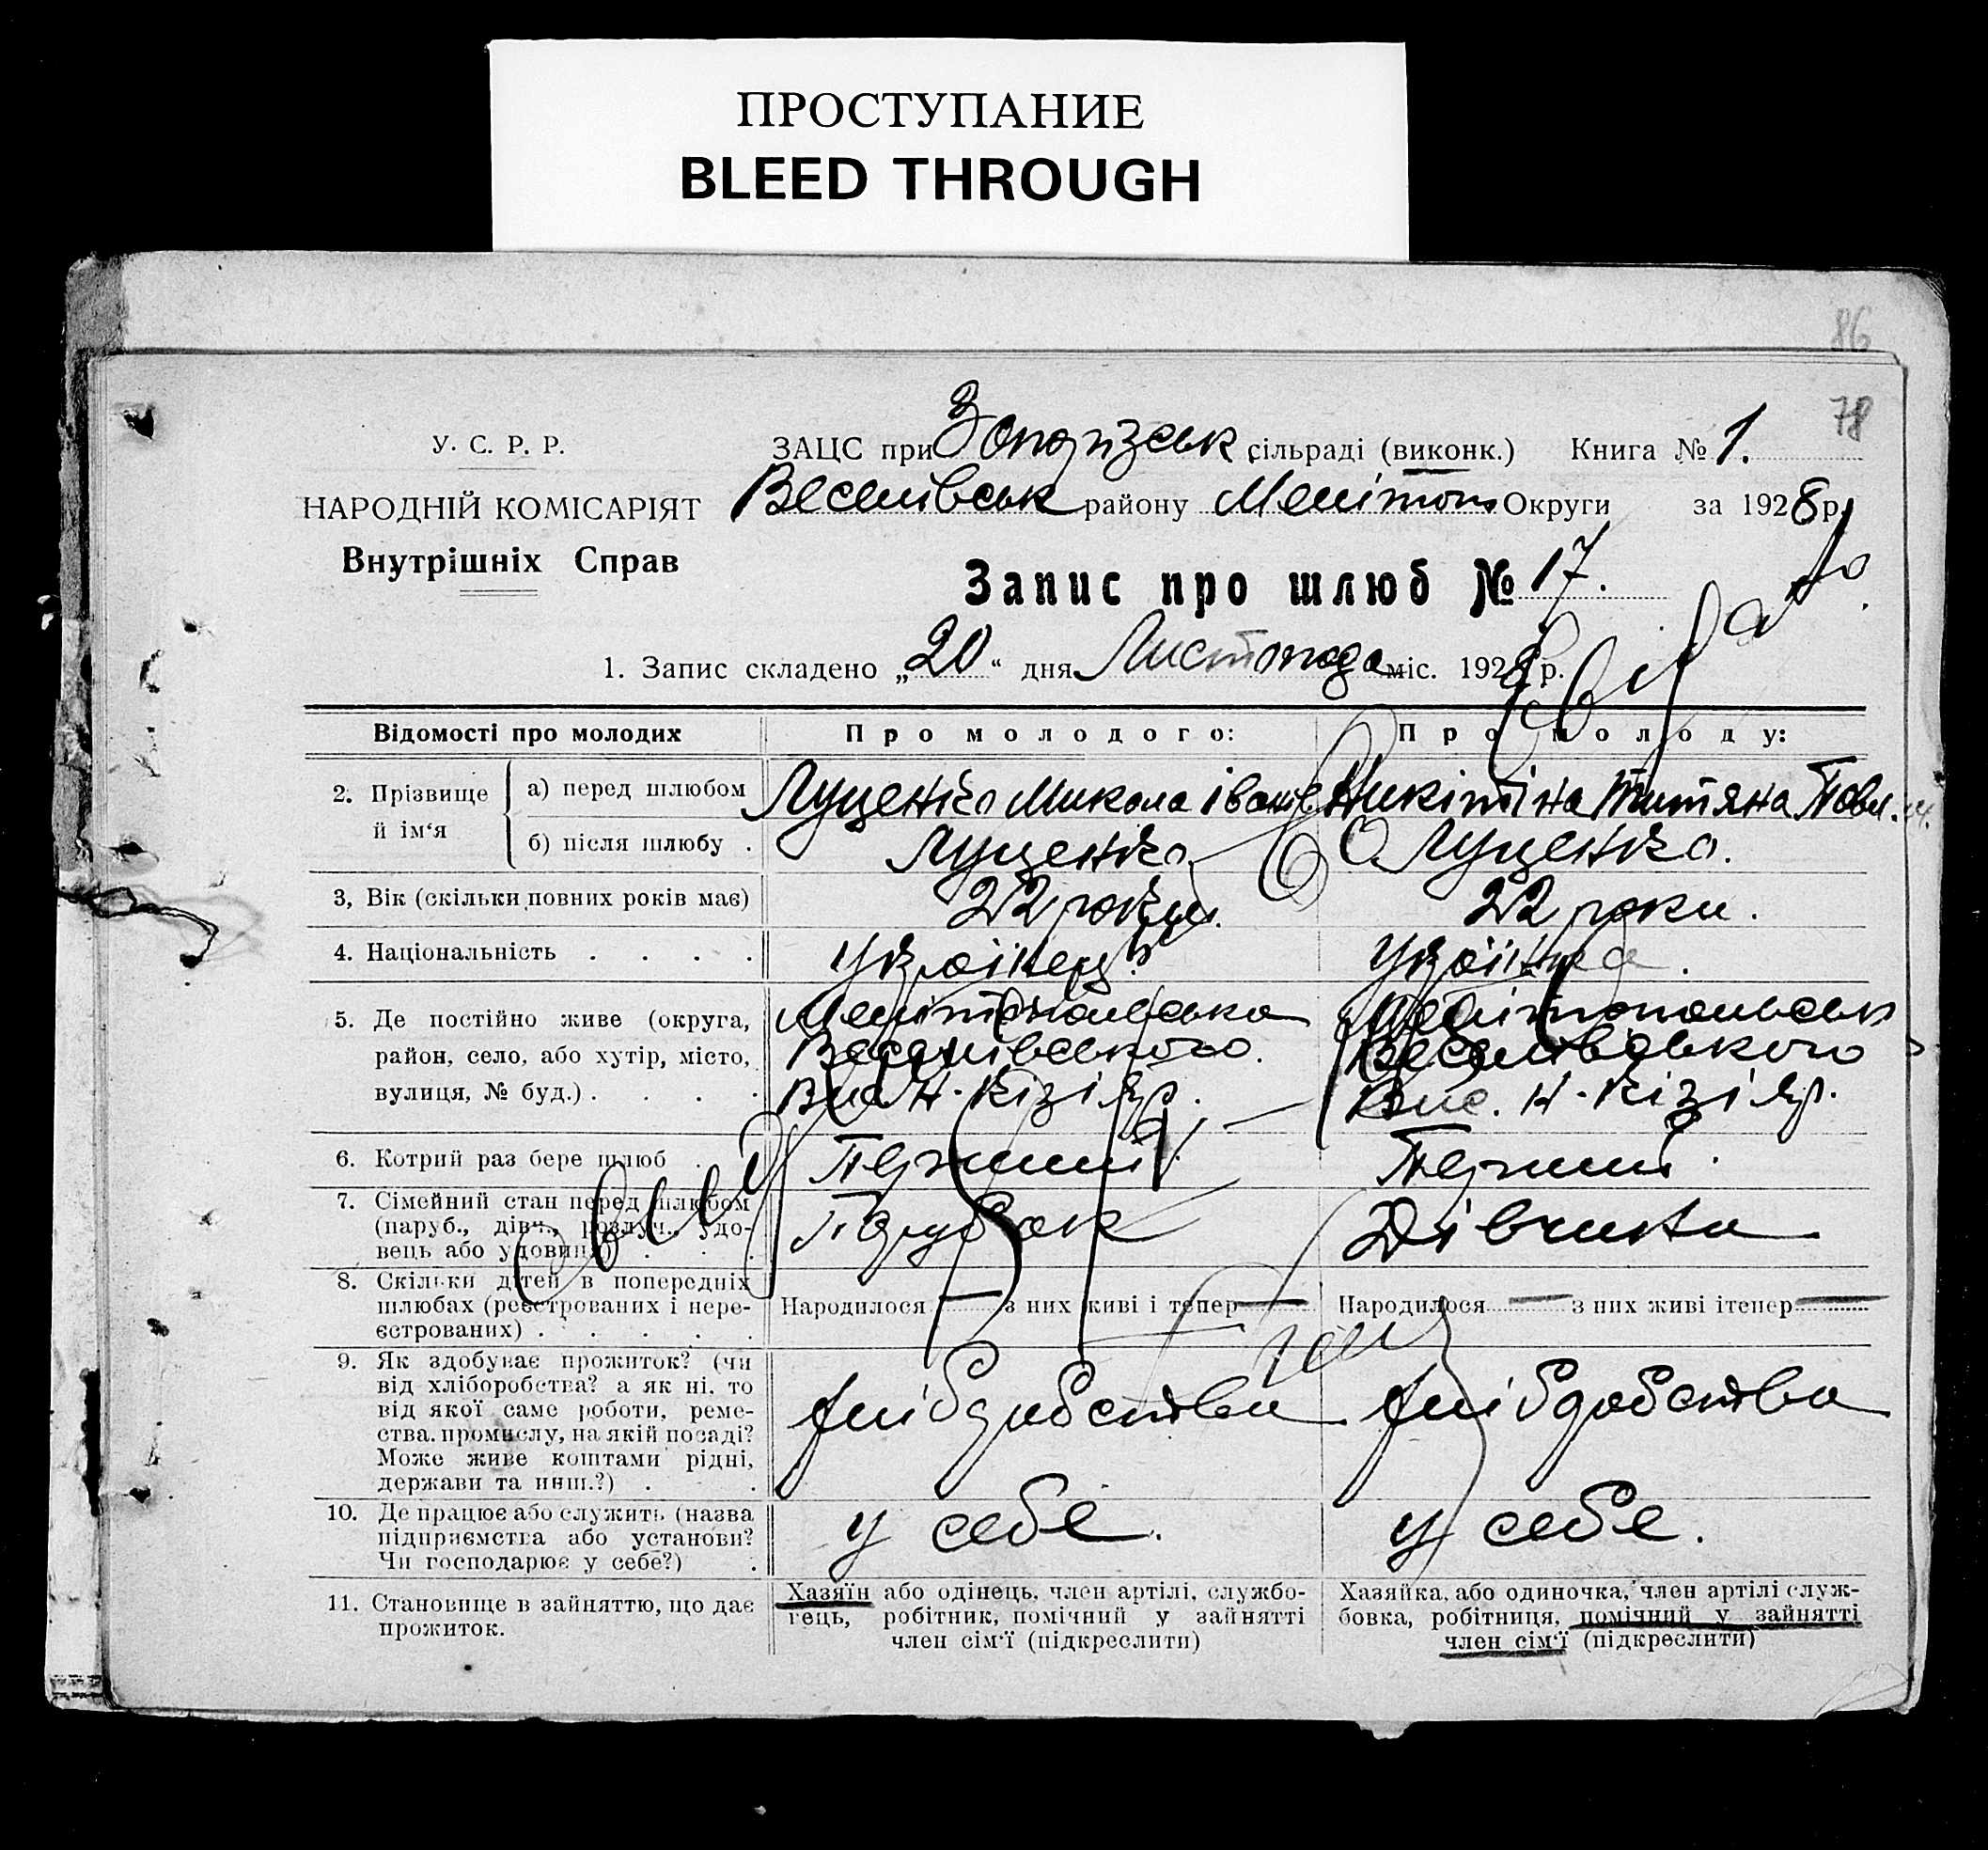 ПРОСТУПАНИЕ
BLEED THROUGH
86
78
У. С. Р. Р.
ЗАЦС при Запорізськ сільраді (виконк.) Книга № 1.
НАРОДНІЙ КОМІСАРІЯТ
Веселівськ району Мелітоп Округи за 1928 р.
Внутрішніх Справ
Запис про шлюб № 17.
1. Запис складено „20“ дня Листопада міс. 1928 р.
Відомості про молодих
Про молодого:
Про молоду:
2. Прізвище й ім‘я
а) перед шлюбом
Луценко Микола Іванов
Нікітіна Титяна Павл.
б) після шлюбу .
Луценко
Луценко.
3, Вік (скільки повних років має)
22 роки.
22 роки.
4. Національність . . . .
Українець
Українка.
5. Де постійно живе (округа,
район, село, або хутір, місто,
вулиця, № буд.) . . . .
Мелітопольська
Веселівського.
Вис. Н-Кізіяр.
Мелітопольськ
Веселівського
Вис. Н-Кізіяр.
6. Котрий раз бере шлюб .
Перший
Перший.
7. Сімейний стан перед шлюбом
(паруб., дівч., розлуч., удо-
вець або удовиця) . . .
Парубок
Дівчина
8. Скільки дітей в попередніх
шлюбах (реєстрованих і нере-
єстрованих) . . . . .
Народилося — з них живі і тепер —
Народилося — з них живі ітепер —
9. Як здобуває прожиток? (чи
від хліборобства? а як ні. то
від якої саме роботи, реме-
ства. промислу, на якій посаді?
Може живе коштами рідні,
держави та инш.?) . .
хлібробства
хлібробства
10. Де працює або служить (назва
підприємства або установи?
Чи господарює у себе?) .
у себе.
у себе.
11. Становище в зайняттю, що дає
прожиток.
Хазяїн або одінець, член артілі, службо-
вець, робітник, помічний у зайнятті
член сім‘ї (підкреслити)
Хазяйка, або одиночка, член артілі служ-
бовка, робітниця, помічний у зайнятті
член сім‘ї (підкреслити)